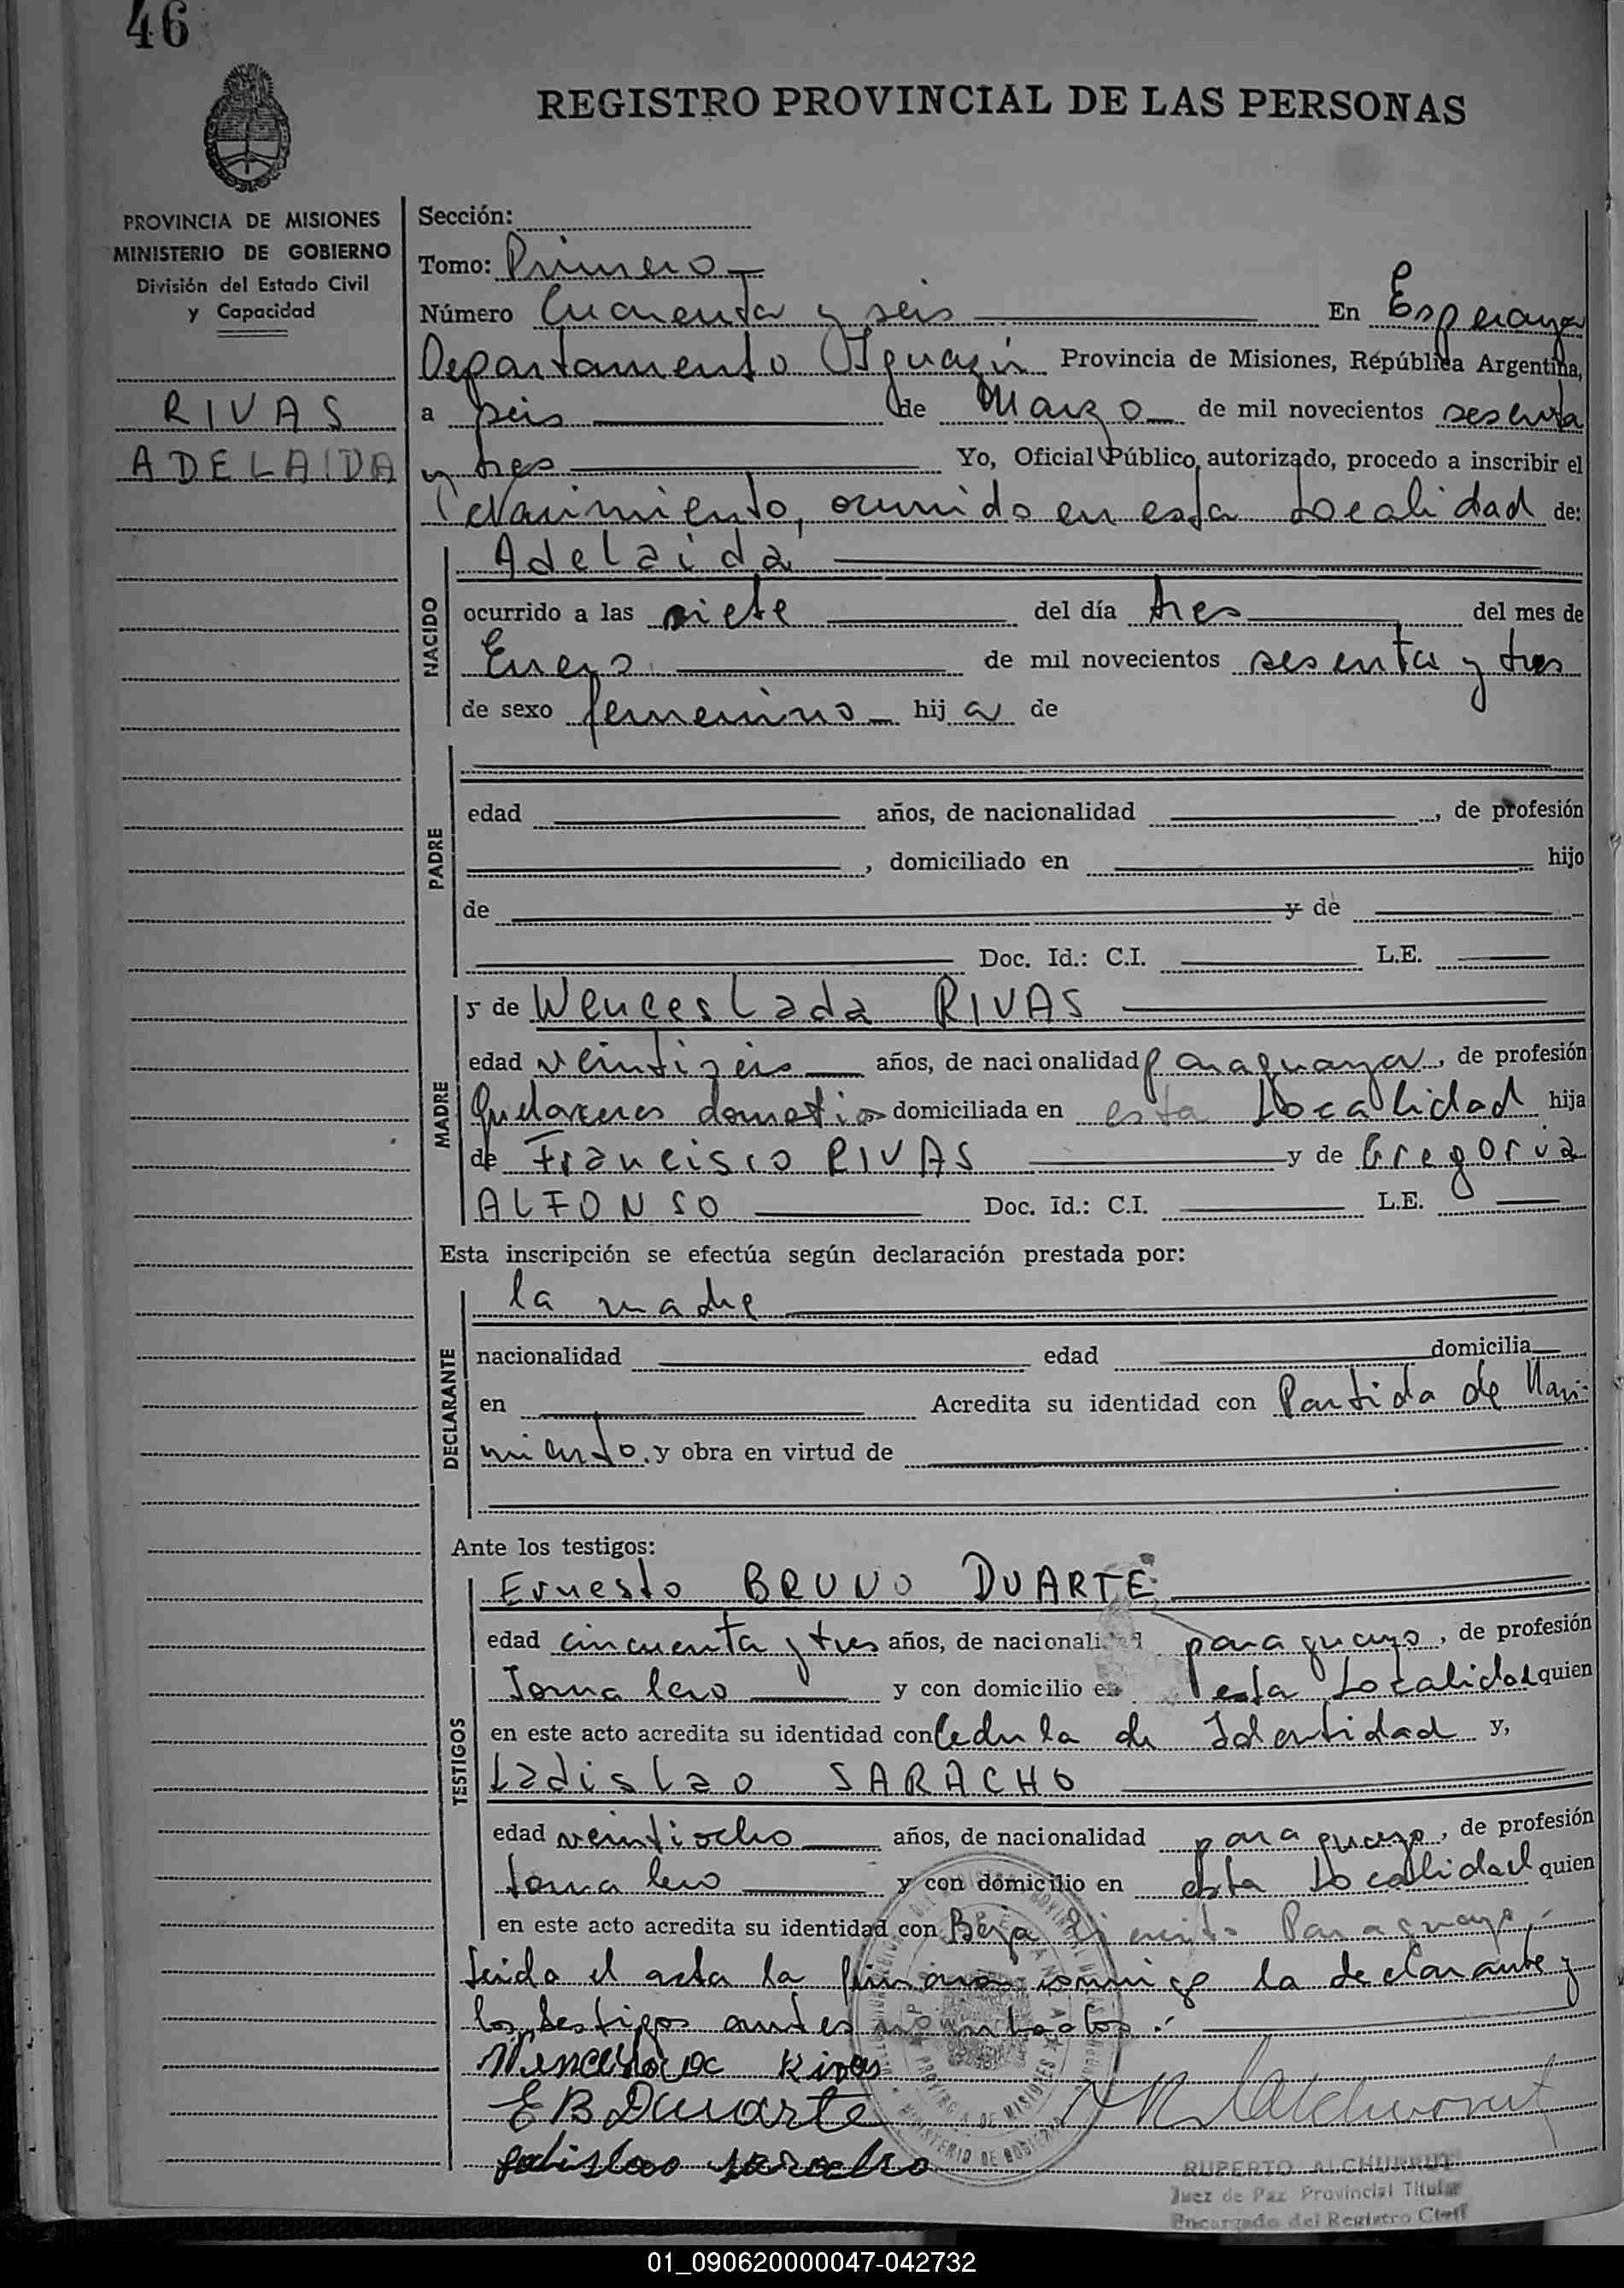 46
REGISTRO PROVINCIAL DE LAS PERSONAS
PROVINCIA DE MISIONES
MINISTERIO DE GOBIERNO
División del Estado Civil
y Capacidad
RIVAS
ADELAIDA
Sección:
Tomo: Primero
Número Cuarenta y seis En Esperanza
Departamento Iguazú Provincia de Misiones, República Argentina,
a seis de Marzo de mil novecientos sesenta
y tres Yo, Oficial Público, autorizado, procedo a inscribir el
Nacimiento, ocurrido en esta Localidad de:
NACIDO
Adelaida
ocurrido a las siete del día tres del mes de
Enero de mil novecientos sesenta y tres
de sexo femenino hij a de
PADRE
edad años, de nacionalidad , de profesión
, domiciliado en hijo
de y de
Doc. Id.: C.I. L.E.
MADRE
y de Wenceslada RIVAS
edad veintiseis años, de nacionalidad paraguaya, de profesión
domiciliada en esta Localidad hija
de Francisco RIVAS y de Gregoria
ALFONSO Doc. Id.: C.I. L.E.
Esta inscripción se efectúa según declaración prestada por:
DECLARANTE
la madre
nacionalidad edad domicilia
en Acredita su identidad con Partida de Naci-
miento. y obra en virtud de
Ante los testigos:
TESTIGOS
Ernesto BRUNO DUARTE
edad cincuenta y tres años, de nacionalidad paraguayo, de profesión
Jornalero y con domicilio en esta Localidad quien
en este acto acredita su identidad con Cedula de Identidad y,
Ladislao SARACHO
edad veintiocho años, de nacionalidad paraguayo, de profesión
Jornalero y con domicilio en esta Localidad quien
en este acto acredita su identidad con Baja Paraguayo,
Leida el acta la firman conmigo la declarante y
los testigos antes nombrados.
Wenceslada Rivas
E B Duarte
Ladislao Saracho
PROVINCIA DE MISIONES
MINISTERIO DE GOBIERNO
RUPERTO ALCHURRUT
Juez de Paz Provincial Titular
Encargado del Registro Civil
01_090620000047-042732